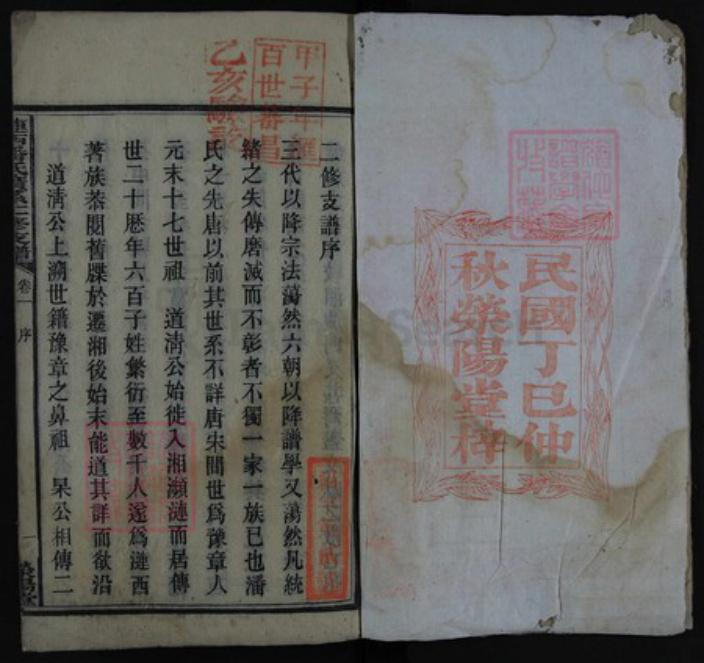 民國丁巳仲
秋滎陽堂梓
甲子年匯
百世蕃昌
乙亥驗訖
二修支譜序
三代以降宗法蕩然六朝以降譜學又蕩然凡統
緒之失傳磨滅而不彰者不獨一家一族已也潘
氏之先唐以前其世系不詳唐宋間世爲豫章人
元末十七世祖 道淸公始徙入湘瀕漣而居傳
世二十歷年六百子姓繁衍至數千人遂爲漣西
著族茶閱舊牒於遷湘後始末能道其詳而欲沿
道淸公上溯世籍豫章之鼻祖 杲公相傳二
卷一 序